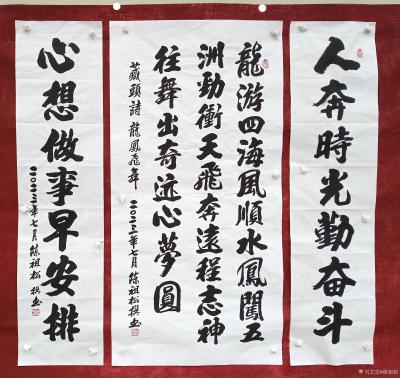 人奔時光勤奋斗
龍游四海風順水鳳闖五
洲勁衝天飛奔遠程志神
往舞出奇迹心夢圓
藏頭詩 龍鳳飛舞 二〇二三年七月 陈祖松撰书
心想做事早安排
二〇二三年七月 陈祖松 撰书